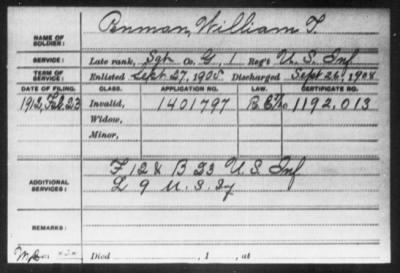 NAME OF SOLDIER: Bnman, William T.
SERVICE: Late rank, Sgt Co. G, 1 Reg't U.S. Inf
TERM OF SERVICE: Enlisted Sept. 27, 1905 Discharged Sept 26, 1908
DATE OF FILING. CLASS. APPLICATION NO. LAW. CERTIFICATE NO.
1912, Feb. 23 Invalid, 1401797 1192,013
Widow,
Minor,
ADDITIONAL SERVICES: F 12 & B 23 U.S. Inf
L 9 U.S. Inf
REMARKS:
Died , 1 , at